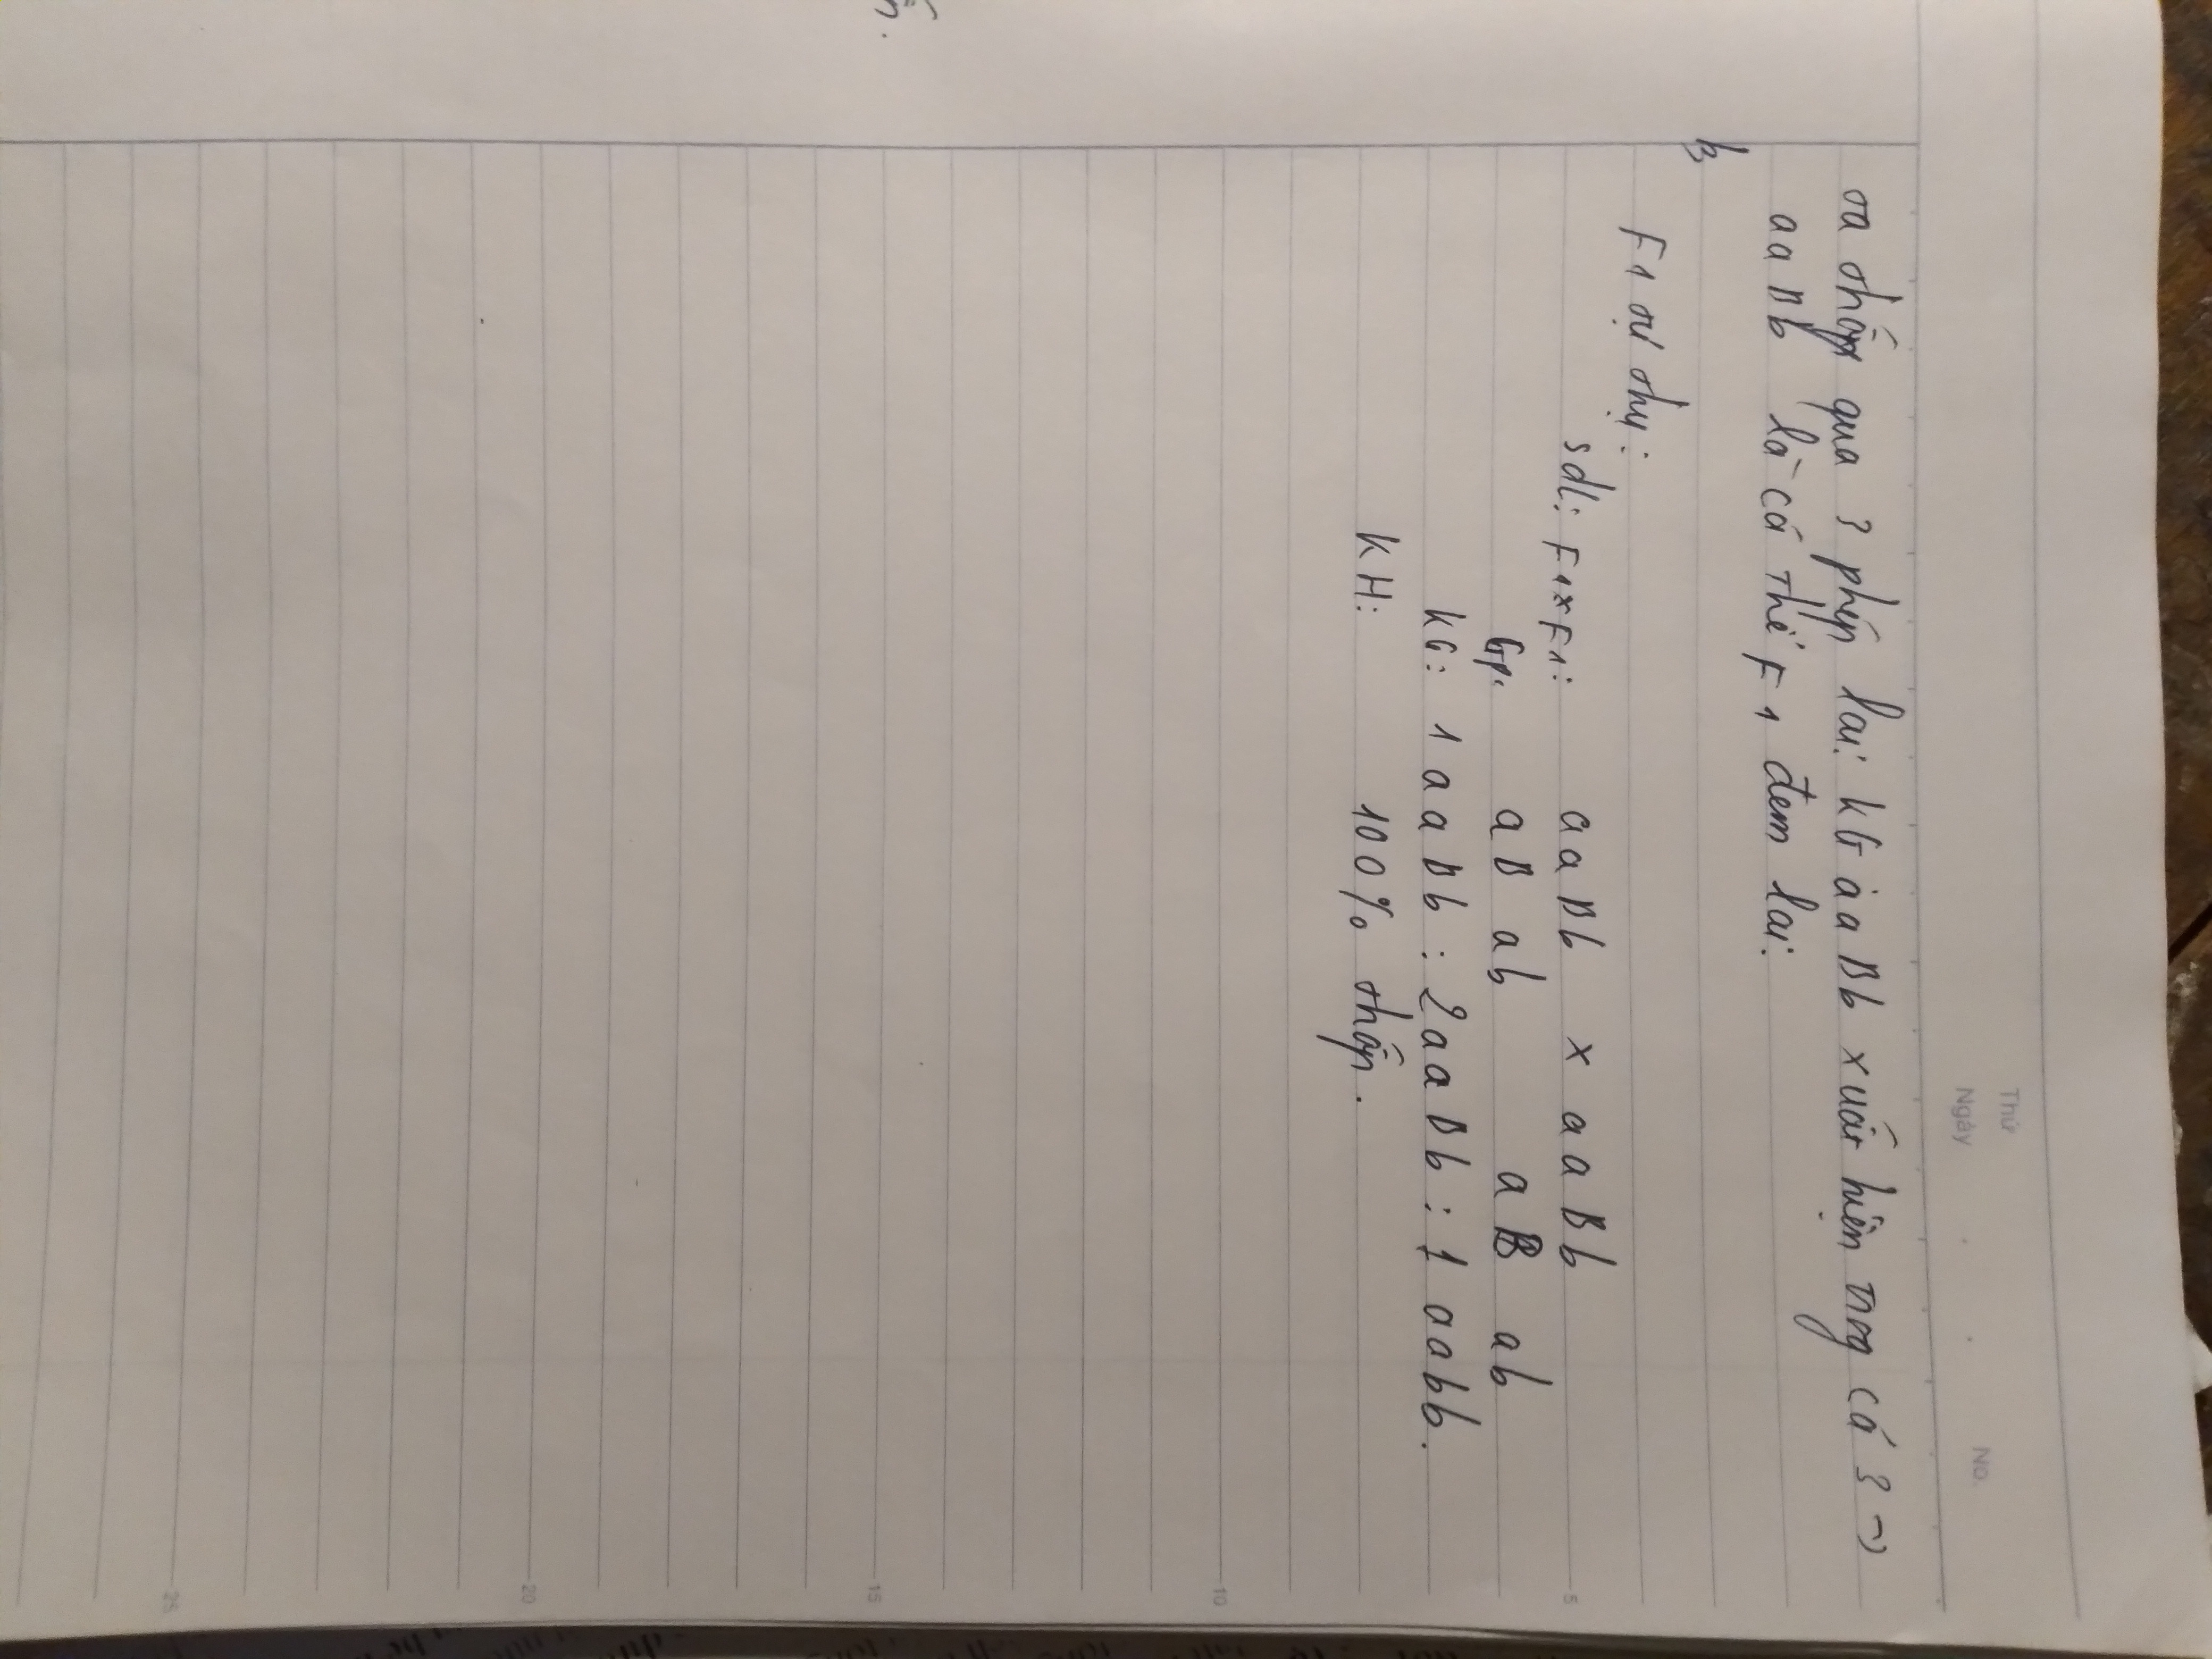 Thứ
Ngày
No.
ta thấy qua 3 phép lai KG aaBb xuất hiện trong cá 3 →
aaBb là cá thể F1 đem lai.
b,
F1 tự thụ:
sdl: F1xF1: aaBb x aaBb
Gp: aB ab aB ab
KG: 1aaBb : 2aaBb : 1 aabb.
KH: 100% thấp.
5
10
15
20
25